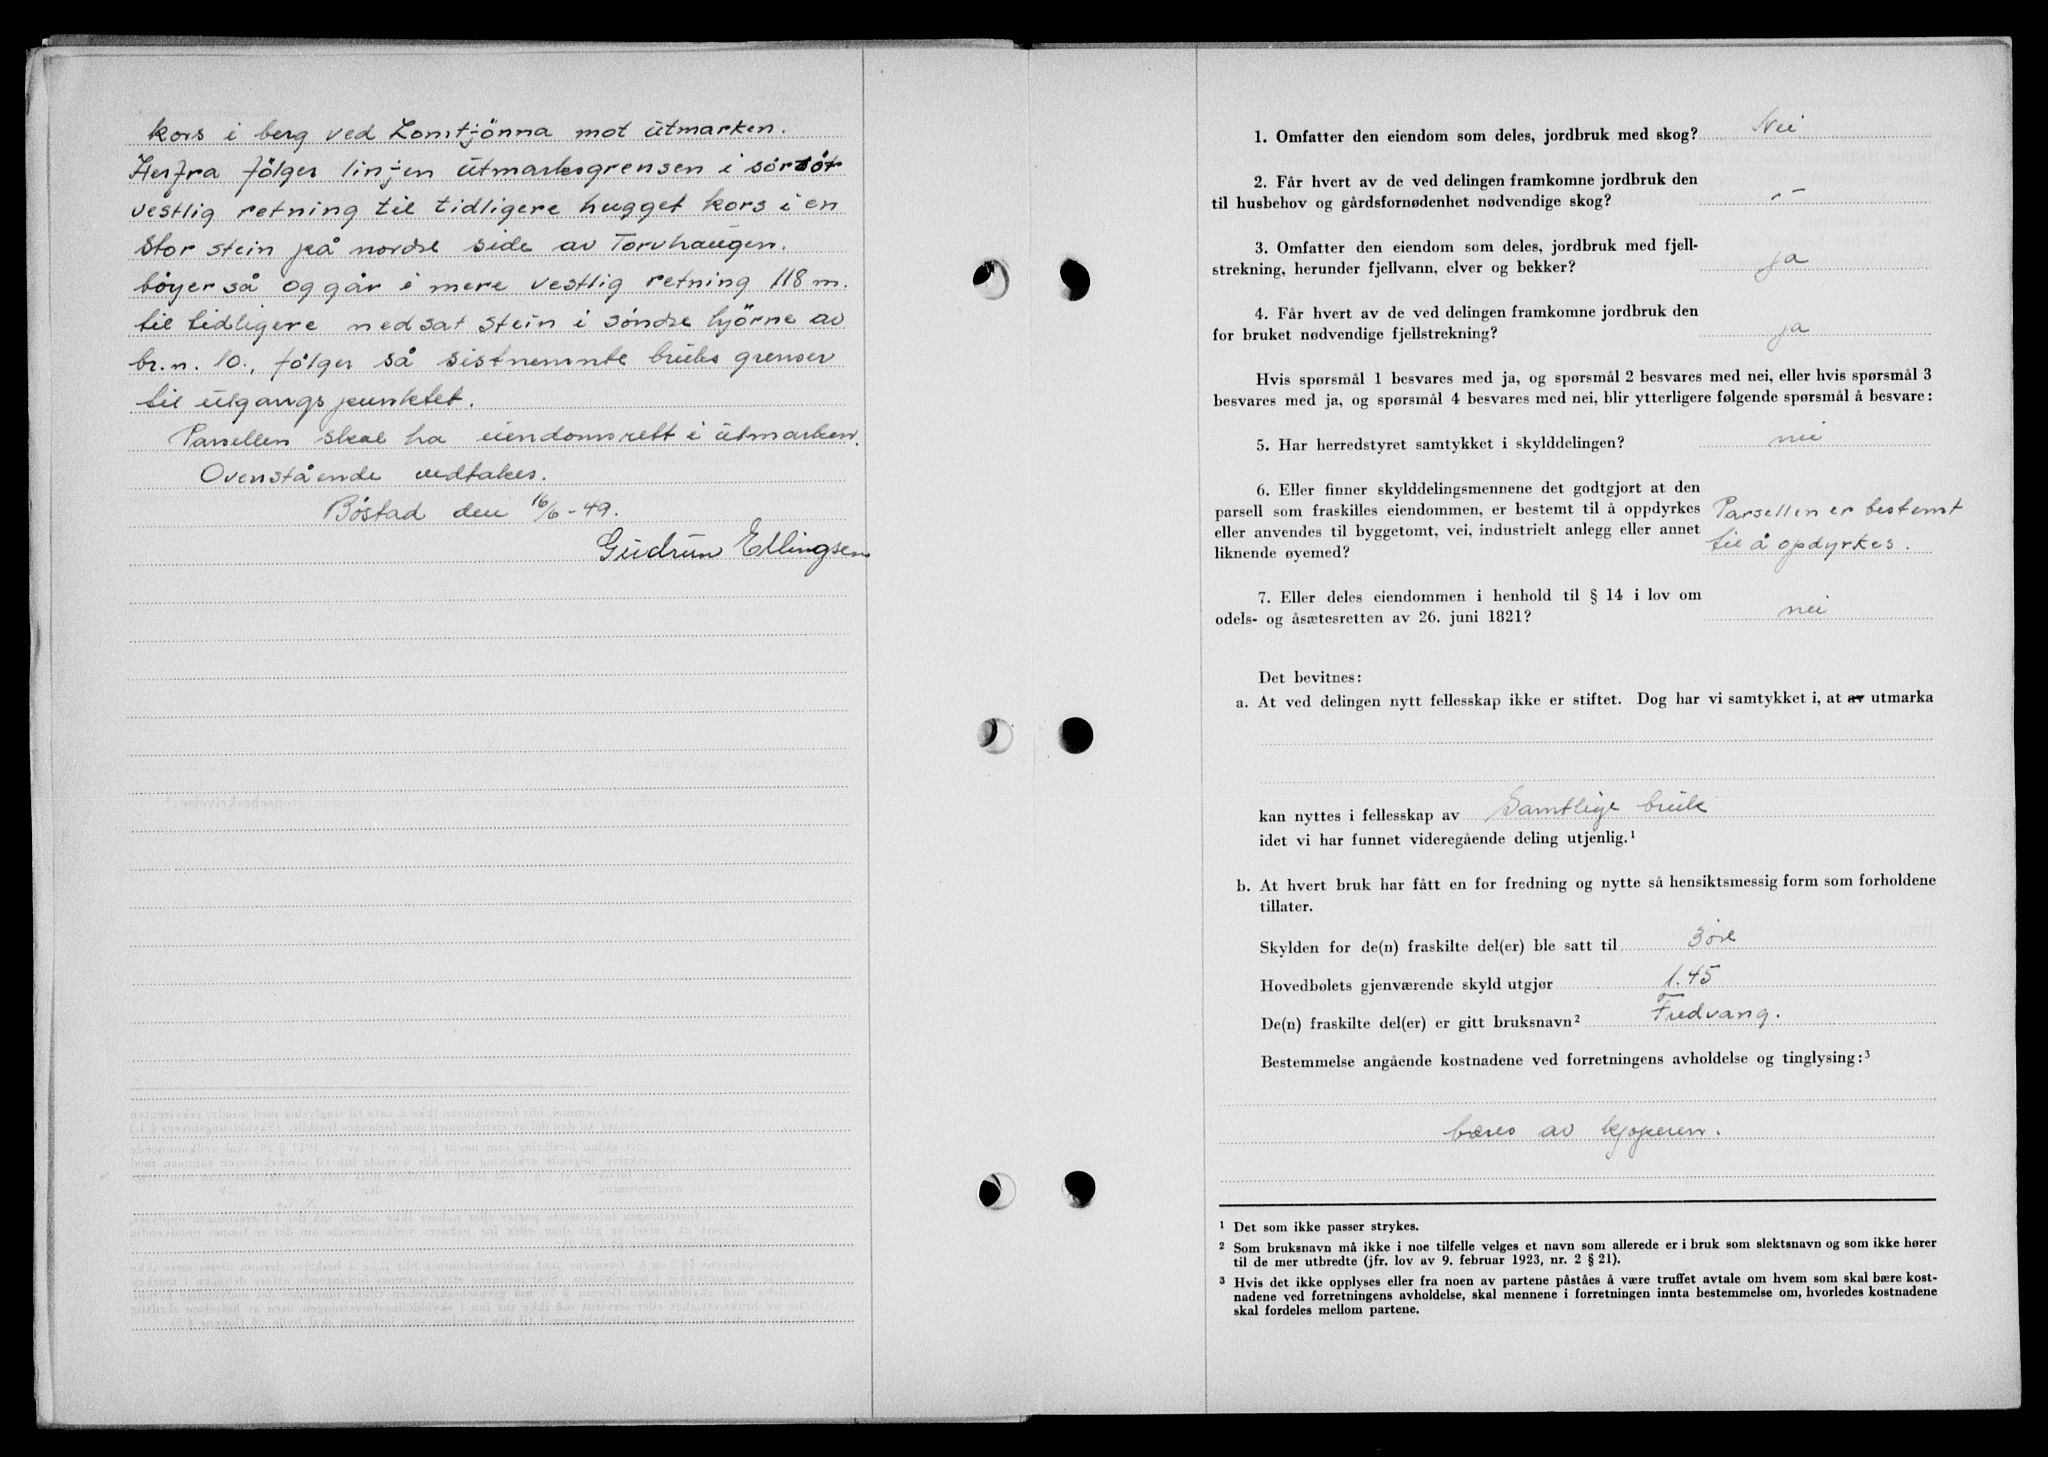 kors i berg ved Lomtjönna mot utmarken.
Herfra følger linjen utmarksgrensen i sør
vestlig retning til tidligere hugget kors i en
stor stein på nordre side av Torvhaugen.
bøyer så og går i mere vestlig retning 118 m.
til tidligere nedsat stein i søndre hjörne av
br.n. 10., følger så sistnemnte bruks grenser
til utgangspunktet.
Parsellen skal ha eiendomsrett i utmarken.
Ovenstående vedtakes.
Bøstad den 16/6-49.
Gudrun Ellingsen
1. Omfatter den eiendom som deles, jordbruk med skog? Nei
2. Får hvert av de ved delingen framkomne jordbruk den
til husbehov og gårdsfornødenhet nødvendige skog? -
3. Omfatter den eiendom som deles, jordbruk med fjell-
strekning, herunder fjellvann, elver og bekker? ja
4. Får hvert av de ved delingen framkomne jordbruk den
for bruket nødvendige fjellstrekning? ja
Hvis spørsmål 1 besvares med ja, og spørsmål 2 besvares med nei, eller hvis spørsmål 3
besvares med ja, og spørsmål 4 besvares med nei, blir ytterligere følgende spørsmål å besvare:
5. Har herredstyret samtykket i skylddelingen? nei
6. Eller finner skylddelingsmennene det godtgjort at den
parsell som fraskilles eiendommen, er bestemt til å oppdyrkes Parsellen er bestemt
eller anvendes til byggetomt, vei, industrielt anlegg eller annet
liknende øyemed? til å opdyrkes.
7. Eller deles eiendommen i henhold til § 14 i lov om
odels- og åsætesretten av 26. juni 1821? nei
Det bevitnes:
a. At ved delingen nytt fellesskap ikke er stiftet. Dog har vi samtykket i, at av utmarka
kan nyttes i fellesskap av Samtlige bruk
idet vi har funnet videregående deling utjenlig.¹
b. At hvert bruk har fått en for fredning og nytte så hensiktsmessig form som forholdene
tillater.
Skylden for de(n) fraskilte del(er) ble satt til 3 øre
Hovedbølets gjenværende skyld utgjør 1.45
De(n) fraskilte del(er) er gitt bruksnavn² Fredvang.
Bestemmelse angående kostnadene ved forretningens avholdelse og tinglysing:³
bæres av kjøperen.
¹ Det som ikke passer strykes.
² Som bruksnavn må ikke i noe tilfelle velges et navn som allerede er i bruk som slektsnavn og som ikke hører
til de mer utbredte (jfr. lov av 9. februar 1923, nr. 2 § 21).
³ Hvis det ikke opplyses eller fra noen av partene påståes å være truffet avtale om hvem som skal bære kost-
nadene ved forretningens avholdelse, skal mennene i forretningen innta bestemmelse om, hvorledes kostnadene
skal fordeles mellom partene.